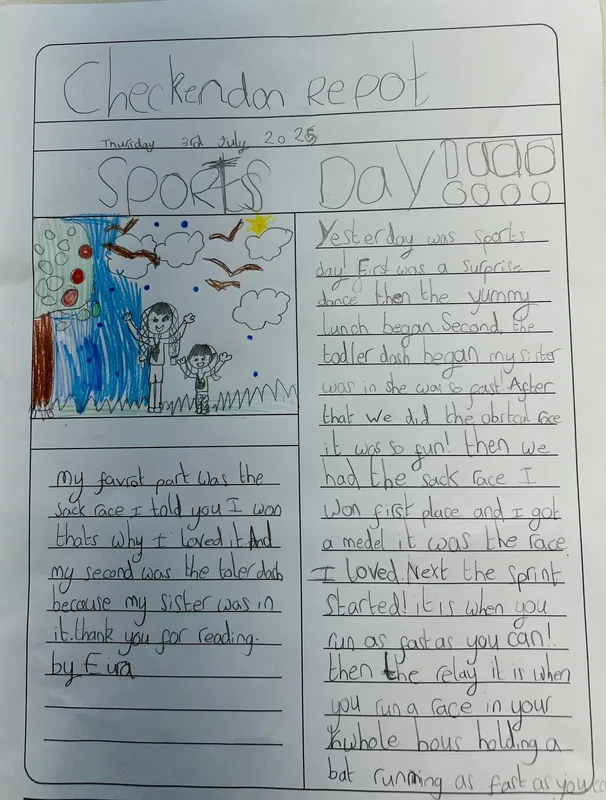 Checkendon repot
Thursday 3rd July 2025
Sports Day
Yesterday was sports
day! First was a surprise
dance then the yummy
lunch began. Second, the
todler dash began my sister
was in she was so fast! After
that we did the obstcul race
it was so fun! then we
had the sack race I
won first place and I got
a medel it was the race
I loved. Next the sprint
started! it is when you
run as fast as you can!
then the relay it is when
you run a race in your
whole hous holding a
bat running as fast as you ca
my favrot part was the
sack race I told you I won
thats why I loved it. And
my second was the toler dash
because my sister was in
it. thank you for reading.
by Eira